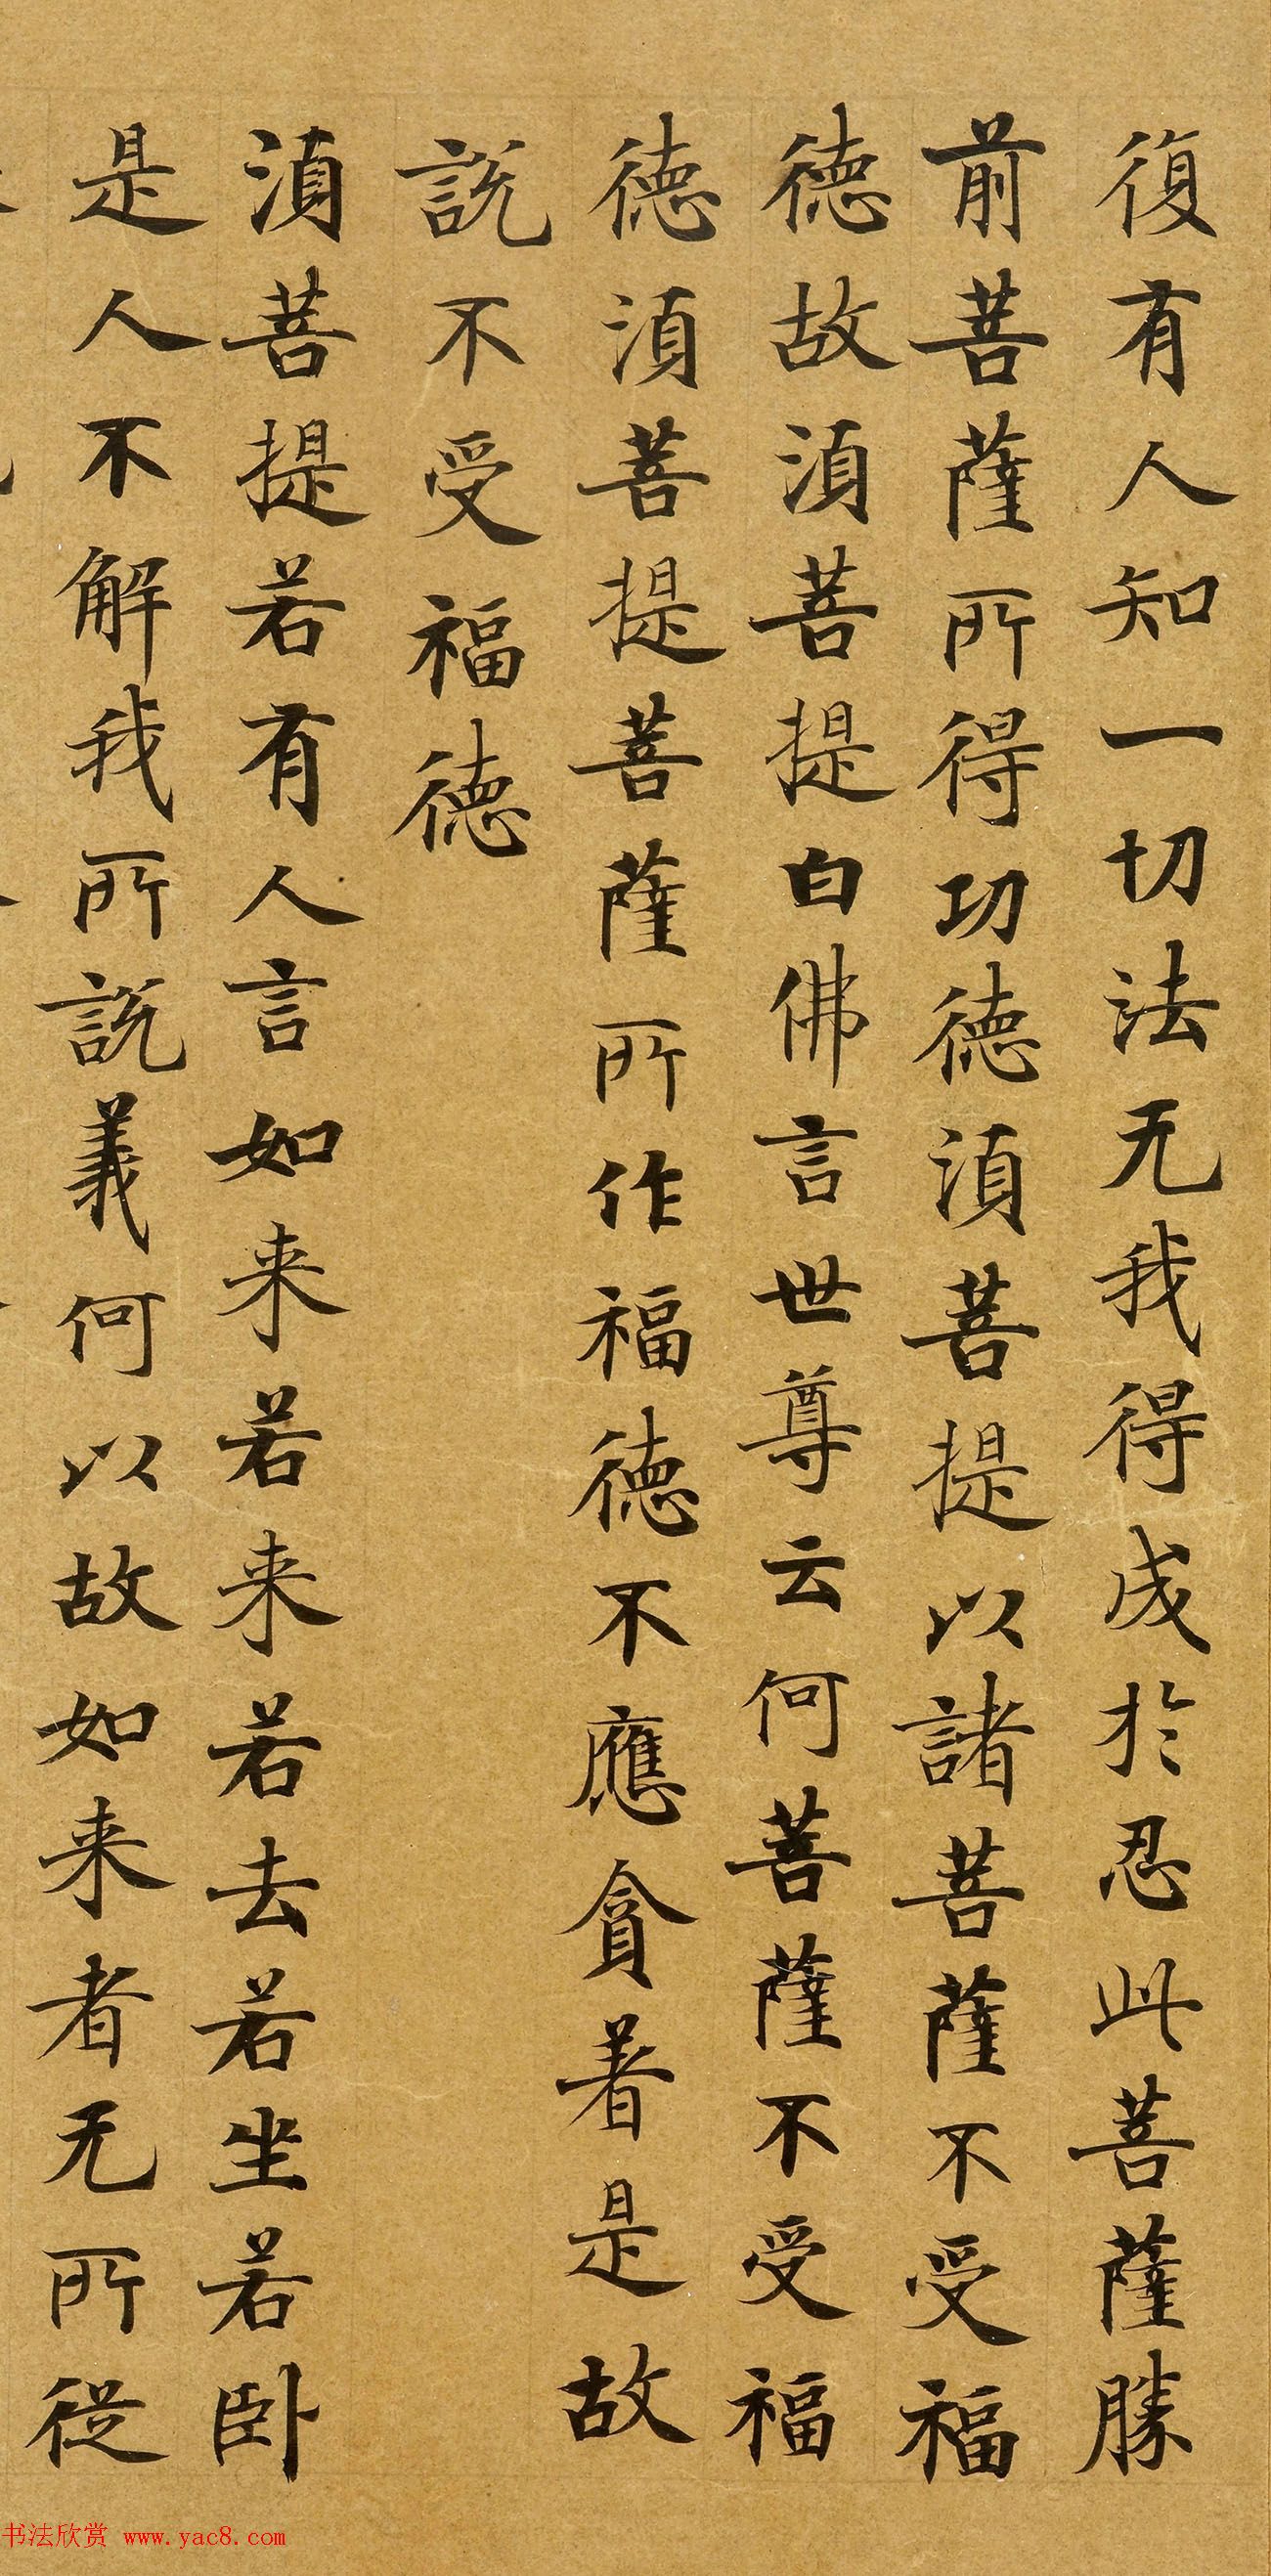 復有人知一切法无我得成於忍此菩薩勝
前菩薩所得功德湏菩提以諸菩薩不受福
德故湏菩提白佛言世尊云何菩薩不受福
德湏菩提菩薩所作福德不應貪著是故
說不受福德
湏菩提若有人言如来若来若去若坐若卧
是人不解我所說義何以故如来者无所從
书法欣赏 www.yac8.com